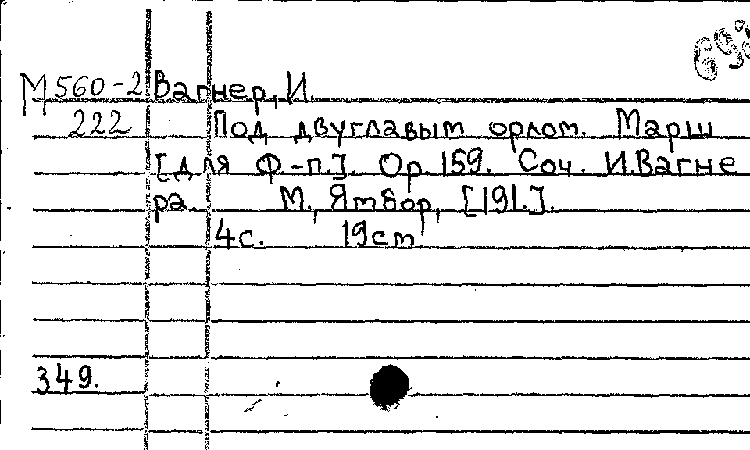 М560-2 Вагнер, И.
222 Под двуглавым орлом. Марш
[для Ф-п.]. Ор. 159. Соч. И. Вагне
ра. М., Ямбор, [191.].
4с. 19cm
349.